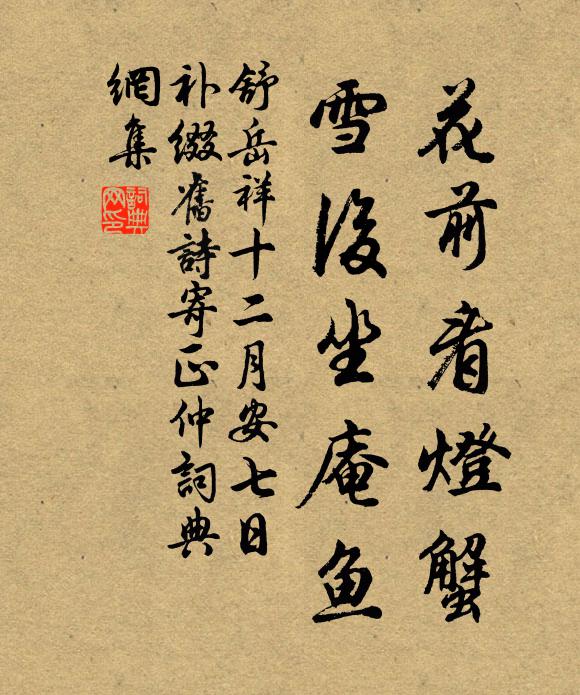 花前看燈蟹
雪後坐庵鱼
舒岳祥十二月安七日
补綴舊詩寄正仲詞典
網集
詞典
网印